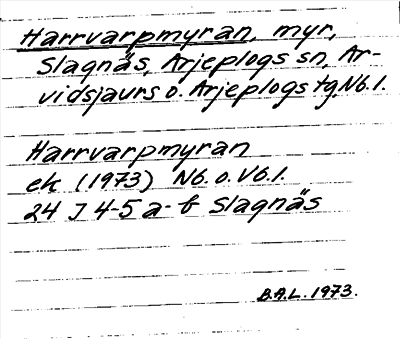 Harrvarpmyran, myr,
Slagnäs, Arjeplogs sn, Ar-
vidsjaurs o. Arjeplogs tg, Nb. l.
Harrvarpmyran
ek (1973) Nb. o. Vb. l.
24 J 4-5 a-b Slagnäs
B.A.L. 1973.